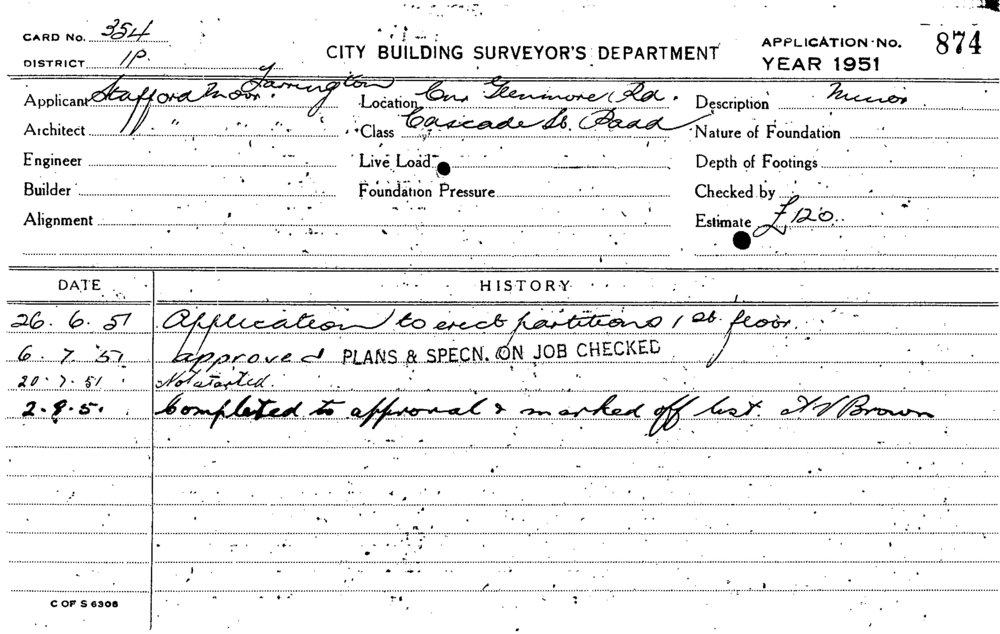 CARD No. 354
DISTRICT 1P.
CITY BUILDING SURVEYOR'S DEPARTMENT
APPLICATION No. 874
YEAR 1951
Applicant Stafford Moor Farrington
Location Cnr Glenmore Rd.
Description Minor
Architect " "
Class Cascade St. Padd
Nature of Foundation
Engineer
Live Load
Depth of Footings
Builder
Foundation Pressure
Checked by
Alignment
Estimate £120.
DATE HISTORY
26.6.51 Application to erect partitions 1st. floor.
6.7.51 approved PLANS & SPECN. ON JOB CHECKED
20.7.51 Not started.
2.9.51 Completed to approval & marked off list. Brown
C OF S 6306